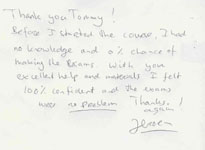 Thank you Tommy!
Before I started the course, I had
no knowledge and 0% chance of
making the exams. With your
excellent help and materials I felt
100% confident and the exams
were no problem Thanks
again!
Jeroen